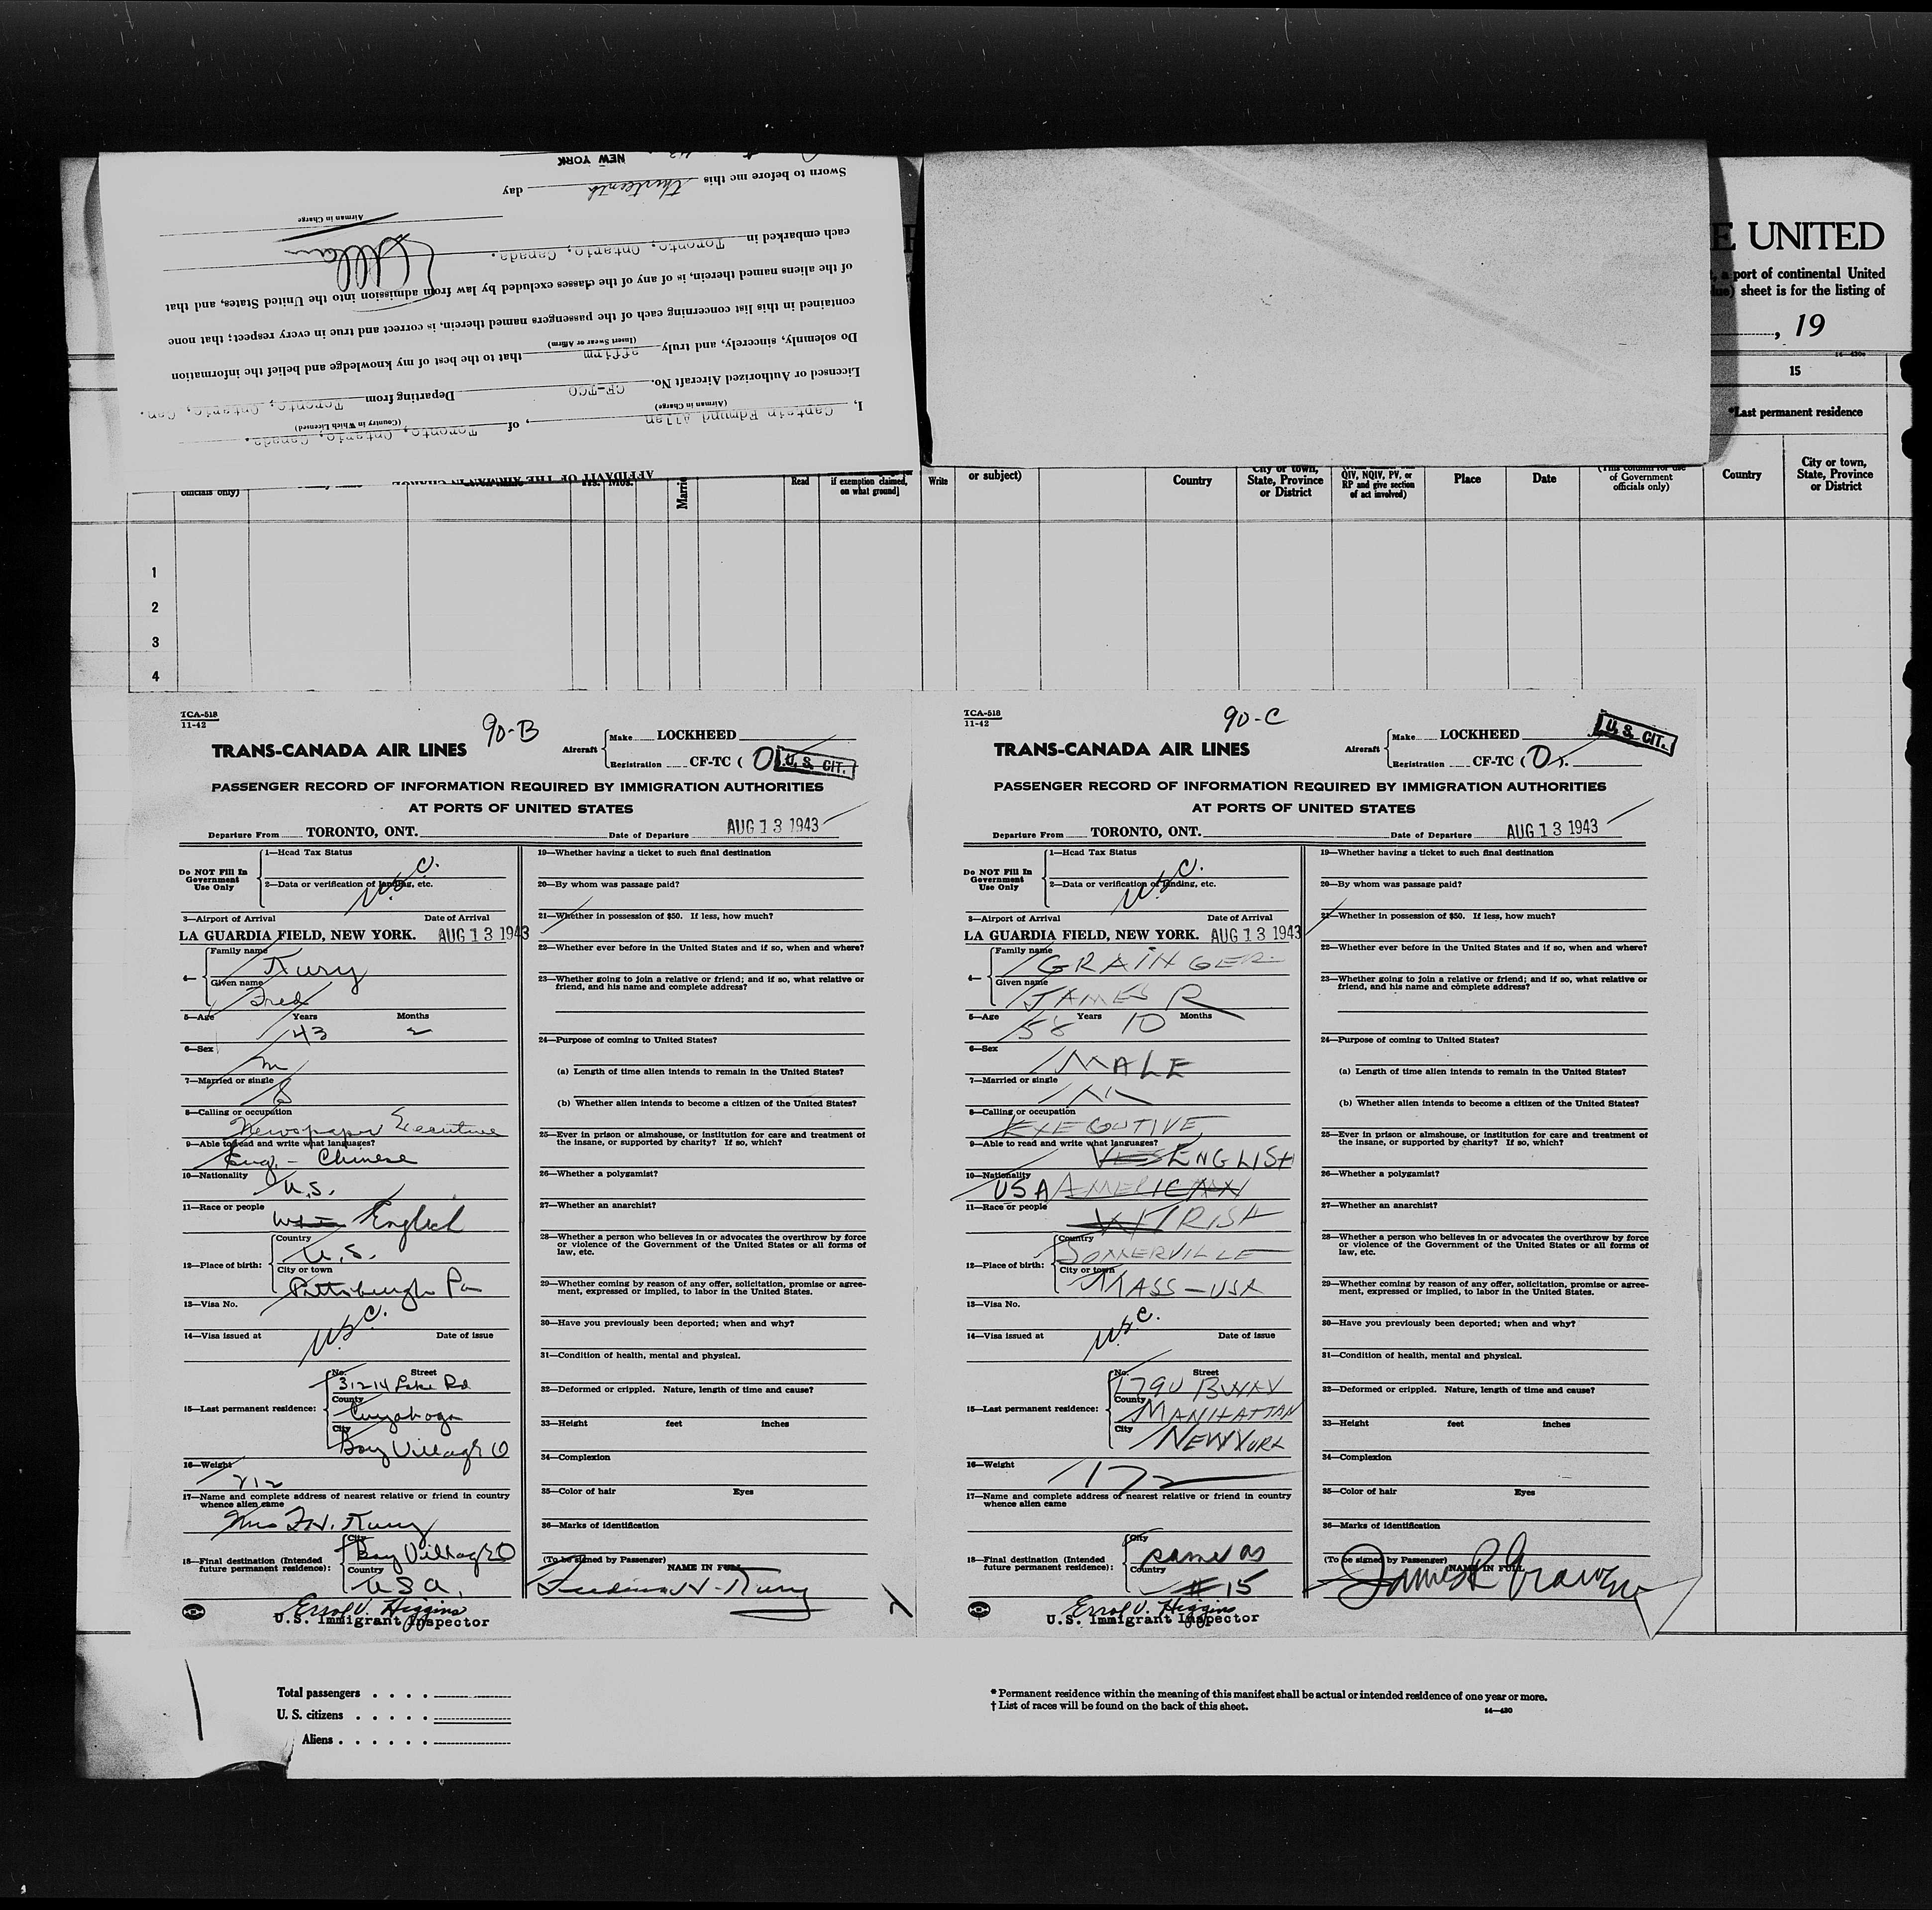 NEW YORK
Sworn to before me this thirteenth day
Airman in Charge
each embarked in Toronto, Ontario, Canada.
of the aliens named therein, is of any of the classes excluded by law from admission into the United States, and that
contained in this list concerning each of the passengers named therein, is correct and true in every respect; that none
Do solemnly, sincerely, and truly affirm that to the best of my knowledge and belief the information
(Insert Swear or Affirm)
Licensed or Authorized Aircraft No. CF-TCO Departing from Toronto, Ontario, Can.
(Airman in Charge) (Country in Which Licensed)
I, Captain Edmund Allan, of Toronto, Ontario, Canada.
AFFIDAVIT OF THE AIRMAN IN CHARGE
E UNITED
a port of continental United
sheet is for the listing of
, 19
15
*Last permanent residence
officials only) Yrs. Mos. Read if exemption claimed, on what ground] Write or subject) Country City or town, State, Province or District QIV, NQIV, PV, or RP and give section of act involved) Place Date (This column for use of Government officials only) Country City or town, State, Province or District
1
2
3
4
TCA-518
11-42
90-B
TRANS-CANADA AIR LINES
Aircraft
Make LOCKHEED
Registration CF-TC ( O
U. S. CIT.
PASSENGER RECORD OF INFORMATION REQUIRED BY IMMIGRATION AUTHORITIES
AT PORTS OF UNITED STATES
Departure From TORONTO, ONT. Date of Departure AUG 13 1943
Do NOT Fill In Government Use Only
1—Head Tax Status
2—Data or verification of landing, etc.
U.S.C.
3—Airport of Arrival Date of Arrival
LA GUARDIA FIELD, NEW YORK. AUG 13 1943
4— Family name Kury
Given name Fred
5—Age Years 43 Months 2
6—Sex M
7—Married or single
8—Calling or occupation
Newspaper Executive
9—Able to read and write what languages?
Eng. - Chinese
10—Nationality U.S.
11—Race or people English
12—Place of birth: Country U.S.
City or town Pittsburgh Pa
13—Visa No.
14—Visa issued at U.S.C. Date of issue
15—Last permanent residence: No. Street
31214 Lake Rd
County
Cuyahoga
City
Bay Village O
16—Weight
212
17—Name and complete address of nearest relative or friend in country
whence alien came
Mrs F.H. Kury
18—Final destination (Intended
future permanent residence):
City Bay Village O
Country U S A.
Errol V. Higgins
U.S. Immigrant Inspector
19—Whether having a ticket to such final destination
20—By whom was passage paid?
21—Whether in possession of $50. If less, how much?
22—Whether ever before in the United States and if so, when and where?
23—Whether going to join a relative or friend; and if so, what relative or
friend, and his name and complete address?
24—Purpose of coming to United States?
(a) Length of time alien intends to remain in the United States?
(b) Whether alien intends to become a citizen of the United States?
25—Ever in prison or almshouse, or institution for care and treatment of
the insane, or supported by charity? If so, which?
26—Whether a polygamist?
27—Whether an anarchist?
28—Whether a person who believes in or advocates the overthrow by force
or violence of the Government of the United States or all forms of
law, etc.
29—Whether coming by reason of any offer, solicitation, promise or agree-
ment, expressed or implied, to labor in the United States.
30—Have you previously been deported; when and why?
31—Condition of health, mental and physical.
32—Deformed or crippled. Nature, length of time and cause?
33—Height feet inches
34—Complexion
35—Color of hair Eyes
36—Marks of identification
(To be signed by Passenger) NAME IN FULL
TCA-518
11-42
90-C
TRANS-CANADA AIR LINES
Aircraft
Make LOCKHEED
Registration CF-TC ( O ).
U. S. CIT.
PASSENGER RECORD OF INFORMATION REQUIRED BY IMMIGRATION AUTHORITIES
AT PORTS OF UNITED STATES
Departure From TORONTO, ONT. Date of Departure AUG 13 1943
Do NOT Fill In Government Use Only
1—Head Tax Status
2—Data or verification of landing, etc.
U.S.C.
3—Airport of Arrival Date of Arrival
LA GUARDIA FIELD, NEW YORK. AUG 13 1943
4— Family name GRAINGER
Given name JAMES R
5—Age 58 Years 10 Months
6—Sex MALE
7—Married or single M
8—Calling or occupation
EXECUTIVE
9—Able to read and write what languages?
YES ENGLISH
10—Nationality
USA AMERICAN
11—Race or people IRISH
12—Place of birth: Country SOMERVILLE
City or town MASS - USA
13—Visa No.
14—Visa issued at U.S.C. Date of issue
15—Last permanent residence: No. Street
1790 BWAY
County
MANHATTAN
City NEW YORK
16—Weight 172
17—Name and complete address of nearest relative or friend in country
whence alien came
18—Final destination (Intended
future permanent residence):
City same as
Country # 15
Errol V. Higgins
U.S. Immigrant Inspector
19—Whether having a ticket to such final destination
20—By whom was passage paid?
21—Whether in possession of $50. If less, how much?
22—Whether ever before in the United States and if so, when and where?
23—Whether going to join a relative or friend; and if so, what relative or
friend, and his name and complete address?
24—Purpose of coming to United States?
(a) Length of time alien intends to remain in the United States?
(b) Whether alien intends to become a citizen of the United States?
25—Ever in prison or almshouse, or institution for care and treatment of
the insane, or supported by charity? If so, which?
26—Whether a polygamist?
27—Whether an anarchist?
28—Whether a person who believes in or advocates the overthrow by force
or violence of the Government of the United States or all forms of
law, etc.
29—Whether coming by reason of any offer, solicitation, promise or agree-
ment, expressed or implied, to labor in the United States.
30—Have you previously been deported; when and why?
31—Condition of health, mental and physical.
32—Deformed or crippled. Nature, length of time and cause?
33—Height feet inches
34—Complexion
35—Color of hair Eyes
36—Marks of identification
(To be signed by Passenger) NAME IN FULL
James R Grainger
Total passengers . . . .
U. S. citizens . . . . .
Aliens . . . . . .
* Permanent residence within the meaning of this manifest shall be actual or intended residence of one year or more.
† List of races will be found on the back of this sheet.
14—430